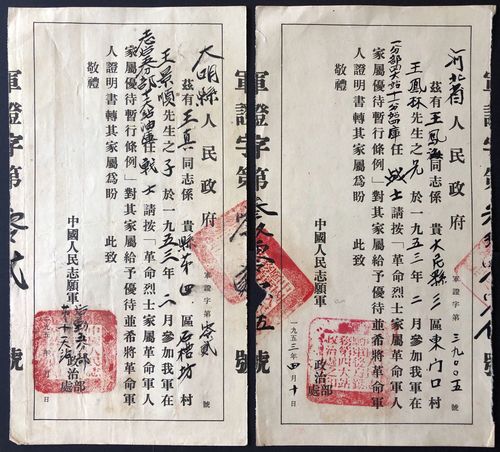 大明縣人民政府
軍證字第零貳號
茲有王真同志係貴縣第四區石榴坊村
王景順先生之子於一九五三年二月參加我軍在
任戰士請按「革命烈士家屬革命軍人
家屬優待暫行條例」對其家屬給予優待並希將革命軍
人證明書轉其家屬為盼 此致
敬禮
中國人民志願軍
治處
軍證字第
號
軍證字第零貳號
河北省人民政府
軍證字第三九〇〇五號
茲有王鳳海同志係貴大名縣三區東門口村
王鳳林先生之兄於一九五三年二月參加我軍在
一分部四大站十一分站四庫任戰士請按「革命烈士家屬革命軍人
家屬優待暫行條例」對其家屬給予優待並希將革命軍
人證明書轉其家屬為盼 此致
敬禮
中國人民志願軍
政治部
處
一九五三年四月十日
軍證字第
五號